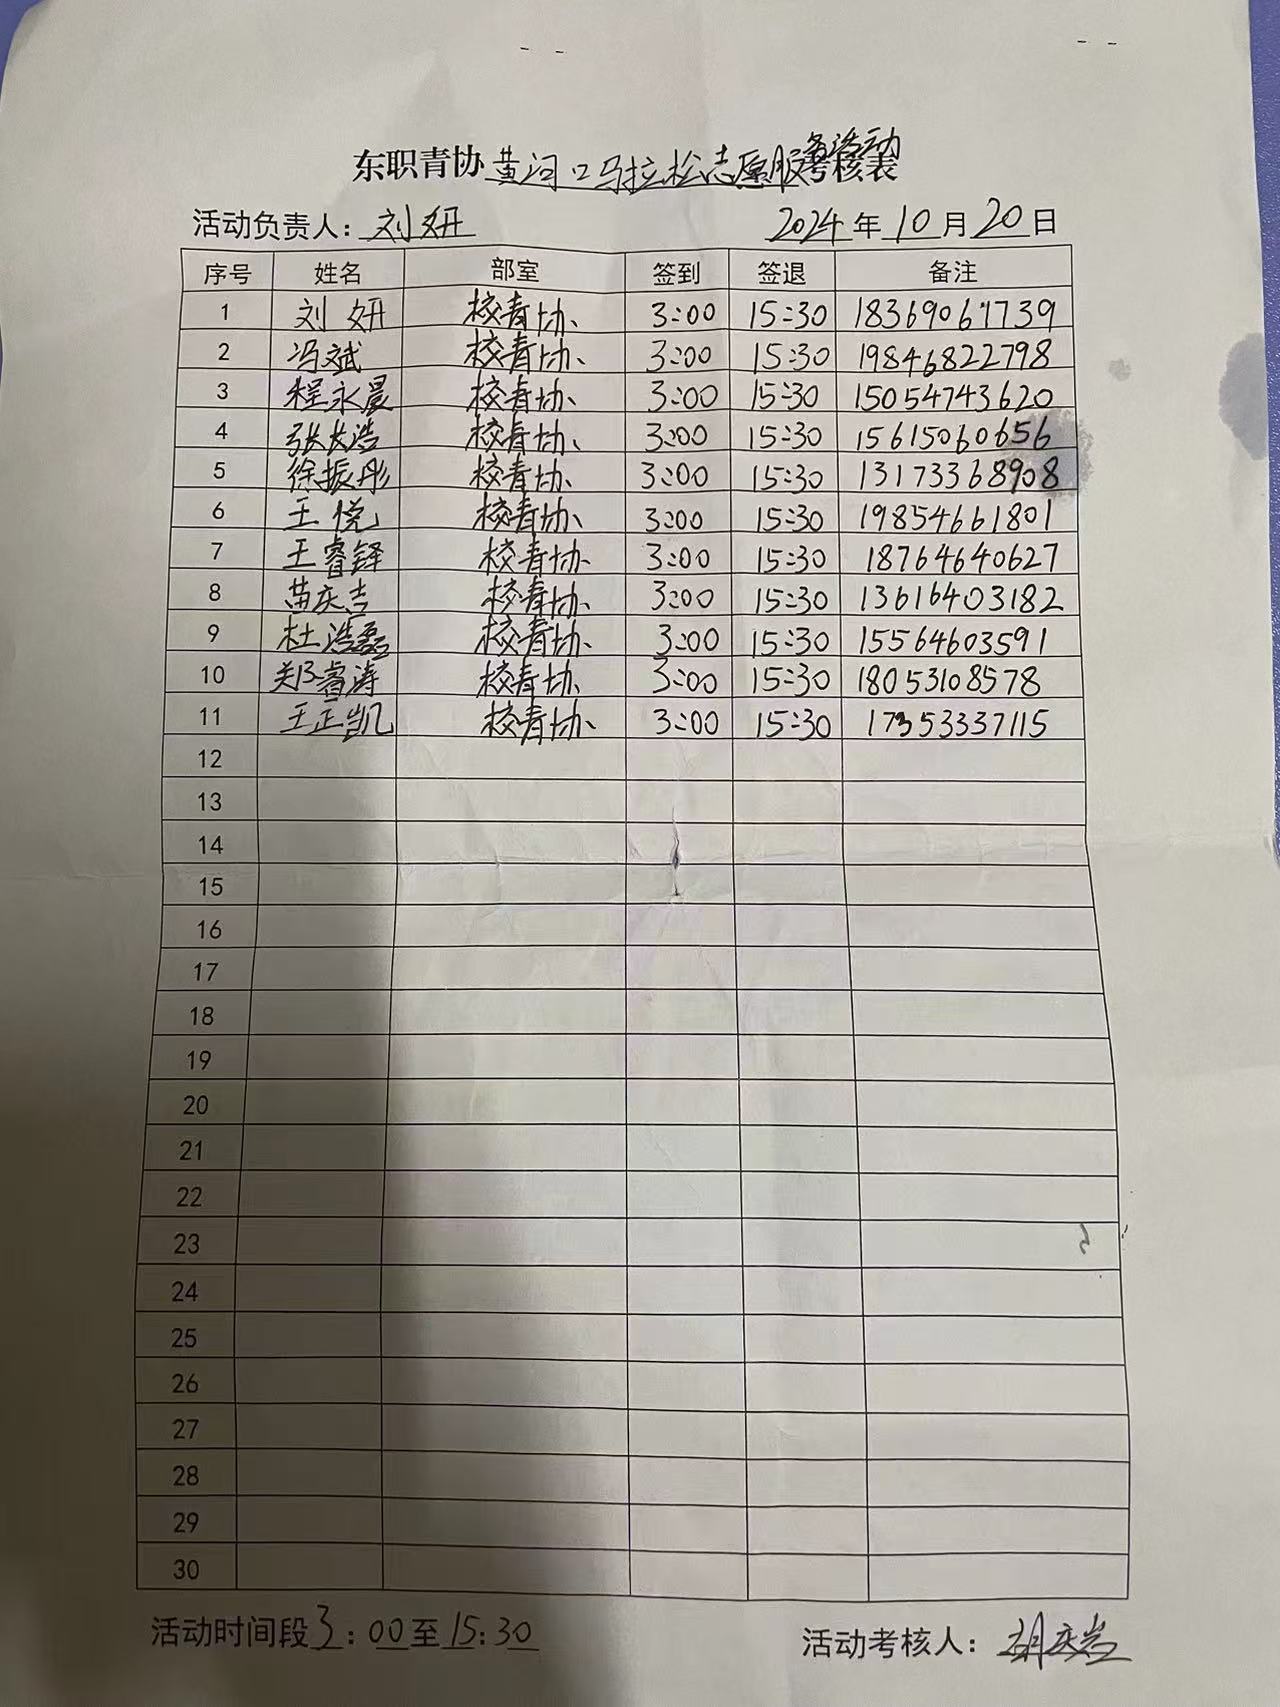 东职青协黄河口马拉松志愿服务活动考核表
活动负责人：刘妍 2024年10月20日
序号 姓名 部室 签到 签退 备注
1 刘妍 校青协 3:00 15:30 18369067739
2 冯斌 校青协 3:00 15:30 19846822798
3 程永晨 校青协 3:00 15:30 15054743620
4 张大浩 校青协 3:00 15:30 15615060656
5 徐振彤 校青协 3:00 15:30 13173368908
6 王悦 校青协 3:00 15:30 19854661801
7 王睿铎 校青协 3:00 15:30 18764640627
8 苗庆吉 校青协 3:00 15:30 13616403182
9 杜浩磊 校青协 3:00 15:30 15564603591
10 郑睿涛 校青协 3:00 15:30 18053108578
11 王正凯 校青协 3:00 15:30 17353337115
12
13
14
15
16
17
18
19
20
21
22
23
24
25
26
27
28
29
30
活动时间段3:00至15:30 活动考核人：